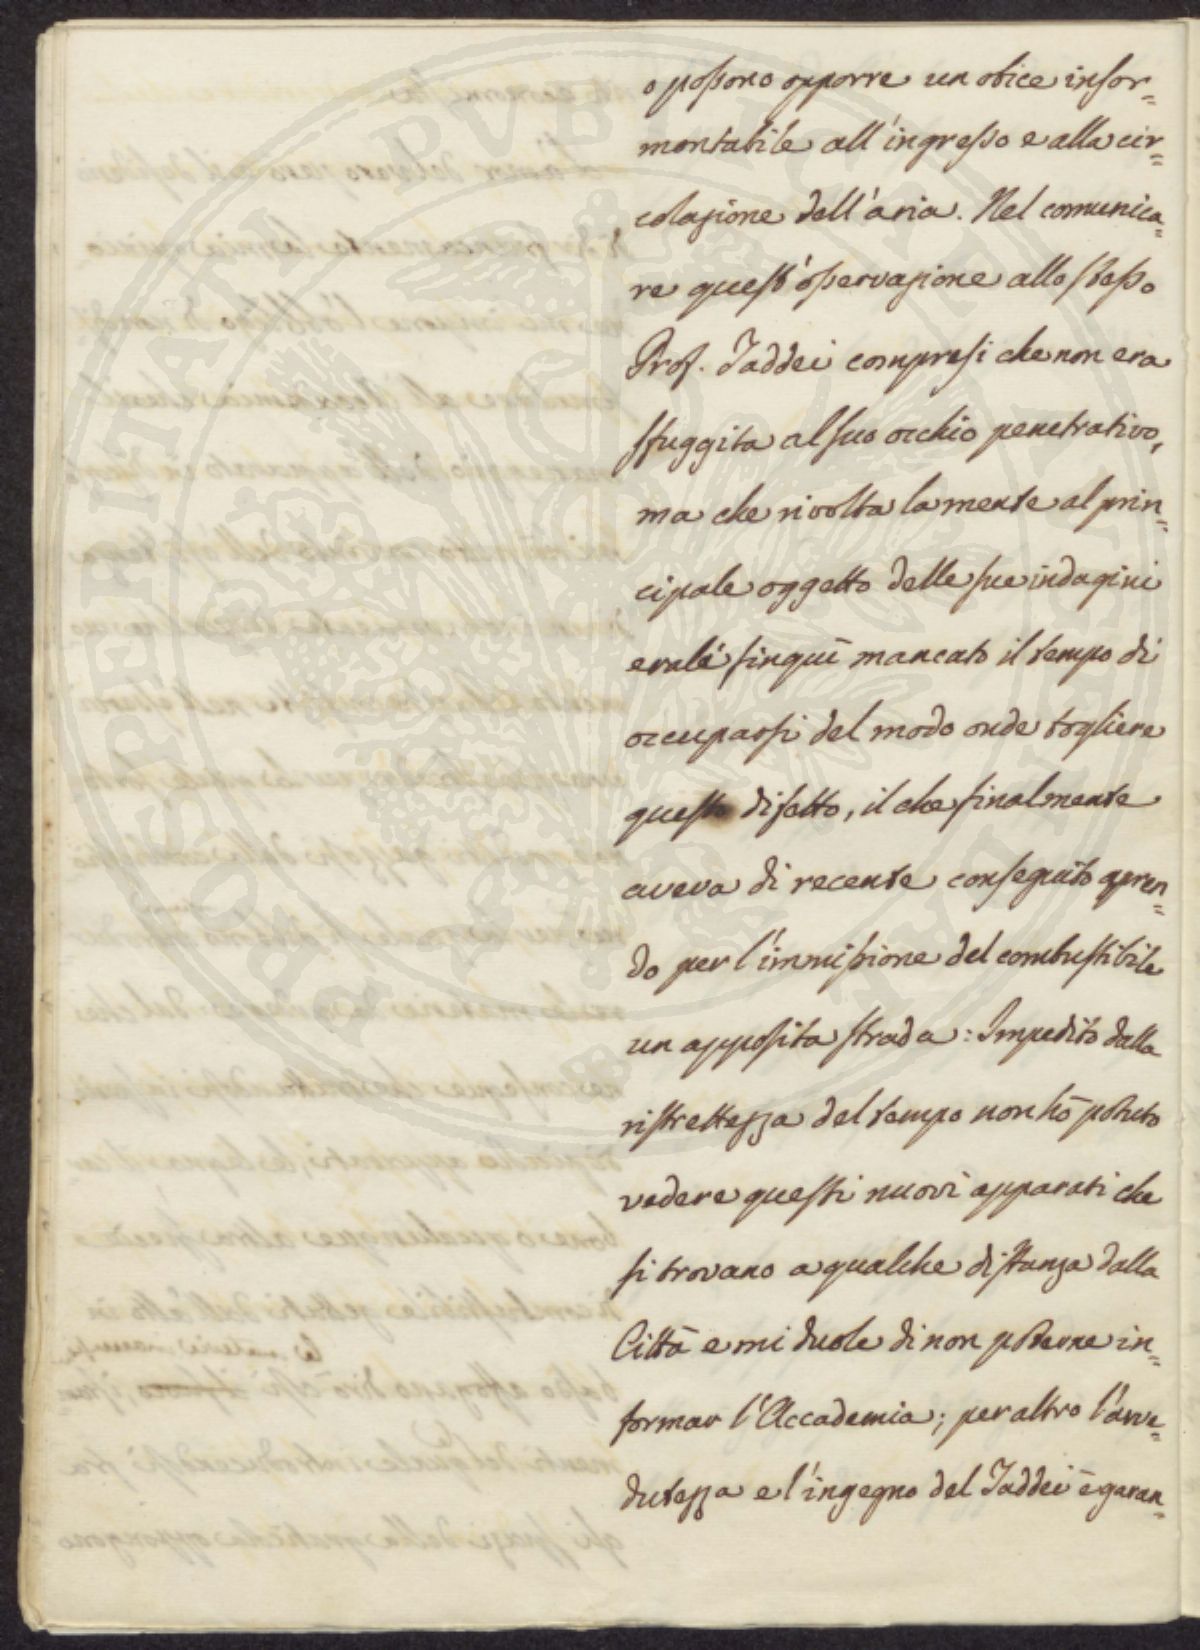 o possono opporre un obice insor=
montabile all'ingresso e alla cir=
colazione dell'aria. Nel comunica=
re quest'osservazione allo stesso
Prof. Taddei compresi che non era
sfuggita al suo occhio penetrativo,
ma che rivolta la mente al prin=
cipale oggetto delle sue indagini
erali finquì mancato il tempo di
occuparsi del modo onde togliere
questo difetto, il che finalmente
aveva di recente conseguito apren=
do per l'immissione del combustibile
un apposita strada: Impedito dalla
ristrettezza del tempo non hò potuto
vedere questi nuovi apparati che
si trovano a qualche distanza dalla
Città e mi duole di non poterne in=
formar l'Accademia; per altro l'avve=
dutezza e l'ingegno del Taddei è garan=
PROSPERITATI PUBLICAE AUGENDAE